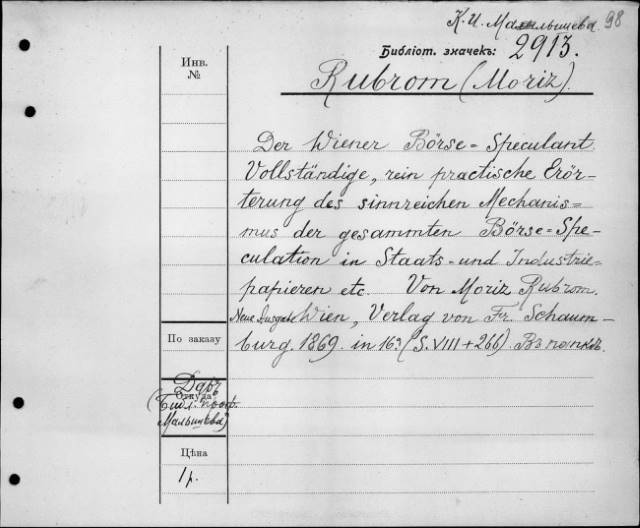 К. И. Малышева. 98
Библіот. значекъ: 2913.
Инв.
№
Rubrom (Moriz).
Der Wiener Börse=Speculant
Vollständige, rein practische Erör-
terung des sinnreichen Mechanis=
mus der gesammten Börse=Spe-
culation in Staats- und Industrie=
papieren etc. Von Moriz Rubrom.
Neue Ausgabe Wien, Verlag von Fr. Schaum-
burg. 1869. in 16º. (S. VIII + 266). Въ папкѣ.
По заказу
Даръ
Откуда
(Библ. проф.
Малышева)
Цѣна
1 р.